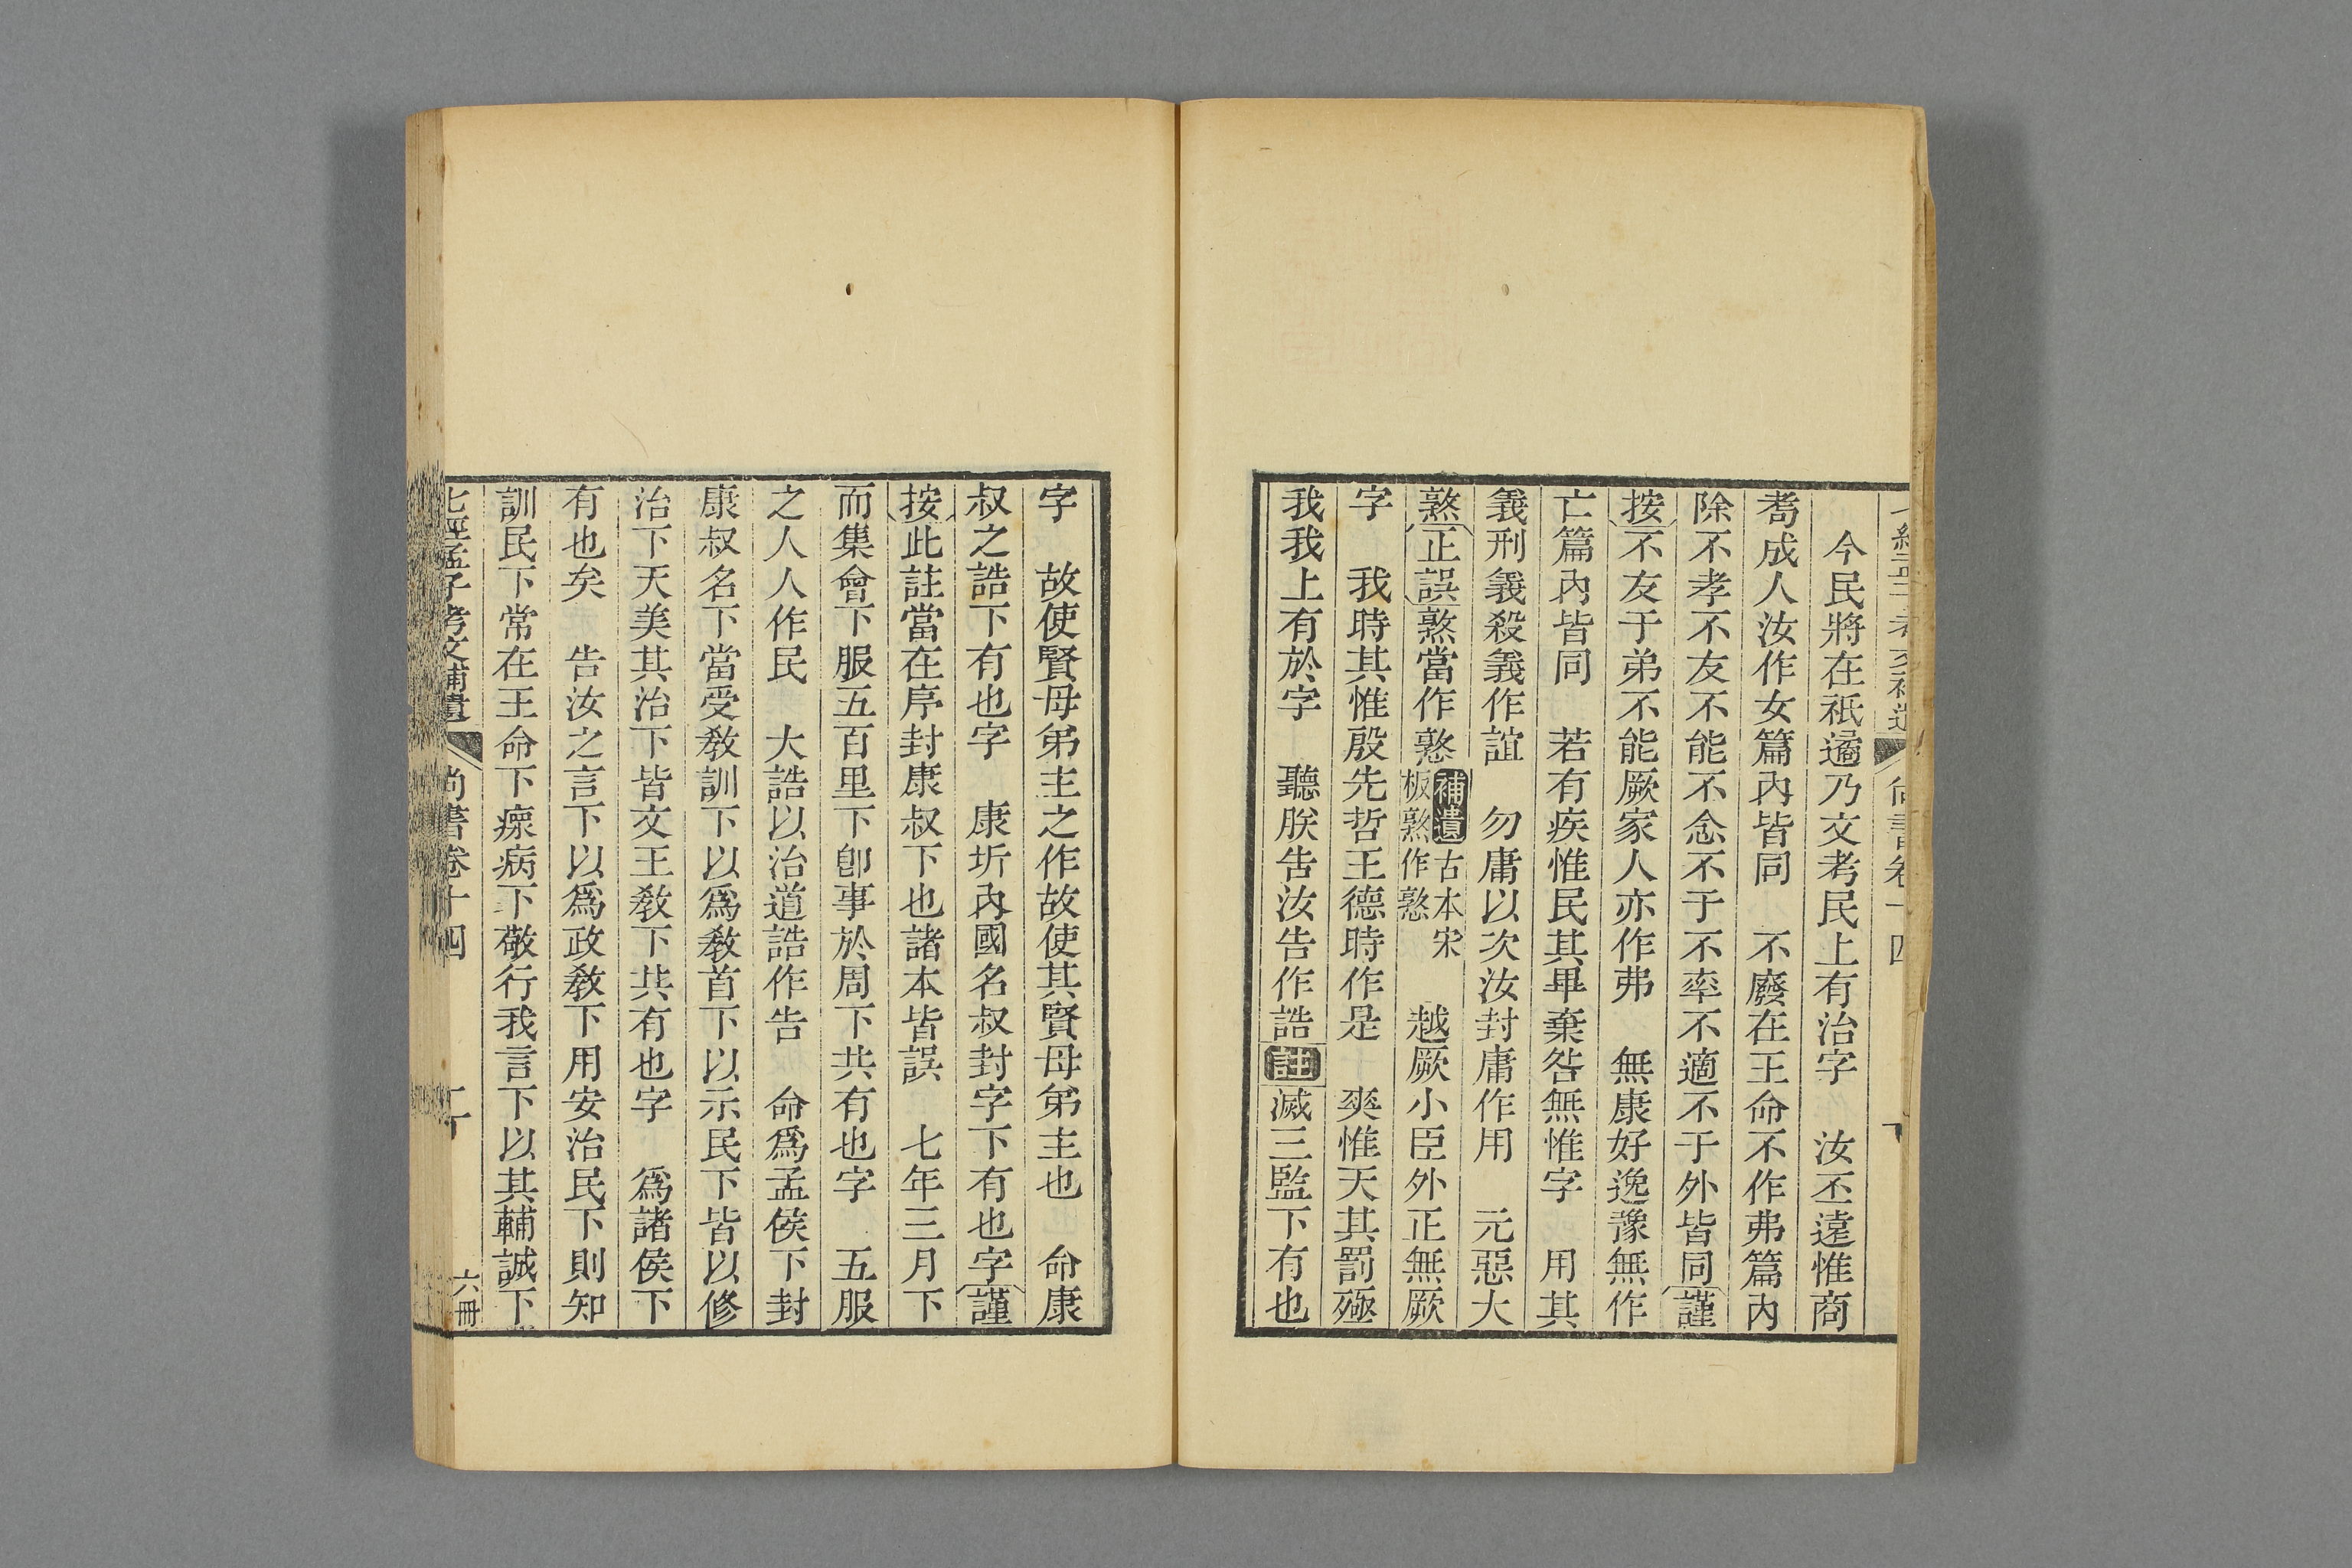 今民將在祇遹乃文考民上有治字　汝丕遠惟商
耇成人汝作女篇內皆同　不廢在王命不作弗篇內
除不孝不友不能不念不于不率不適不于外皆同謹
按不友于弟不能厥家人亦作弗　無康好逸豫無作
亡篇內皆同　若有疾惟民其畢棄咎無惟字　用其
義刑義殺義作誼　勿庸以次汝封庸作用　元惡大
憝正誤憝當作憝補遺古本宋板憝作憝　越厥小臣外正無厥
字　我時其惟殷先哲王德時作是　爽惟天其罰殛
我我上有於字　聽朕告汝告作誥註滅三監下有也
字　故使賢母弟主之作故使其賢母弟主也　命康
叔之誥下有也字　康圻內國名叔封字下有也字謹
按此註當在序封康叔下也諸本皆誤　七年三月下
而集會下服五百里下卽事於周下共有也字　五服
之人人作民　大誥以治道誥作告　命爲孟侯下封
康叔名下當受敎訓下以爲敎首下以示民下皆以修
治下天美其治下皆文王敎下共有也字　爲諸侯下
有也矣　告汝之言下以爲政敎下用安治民下則知
訓民下常在王命下瘝病下敬行我言下以其輔誠下
七經孟子考文補遺　尚書卷十四　六冊